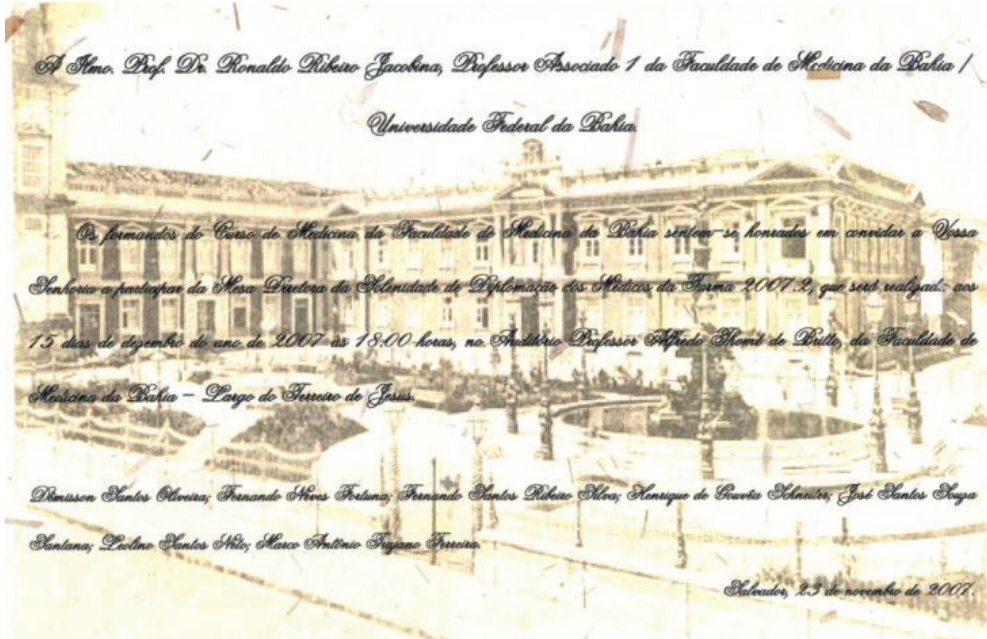 A Ilmo. Prof. Dr. Ronaldo Ribeiro Jacobina, Professor Associado 1 da Faculdade de Medicina da Bahia /
Universidade Federal da Bahia.
Os formandos do Curso de Medicina da Faculdade de Medicina da Bahia sentem-se honrados em convidar a Vossa
Senhoria a participar da Mesa Diretora da Solenidade de Diplomação dos Médicos da Turma 2007.2, que será realizada aos
15 dias de dezembro do ano de 2007 às 18:00 horas, no Auditório Professor Alfredo Thomé de Britto, da Faculdade de
Medicina da Bahia – Largo do Terreiro de Jesus.
Dêmisson Santos Oliveira; Fernando Neves Fortuna; Fernando Santos Ribeiro Silva; Henrique de Gouvêa Schneiter; José Santos Souza
Santana; Leolino Santos Neto; Marco Antônio Trajano Ferreira.
Salvador, 23 de novembro de 2007.